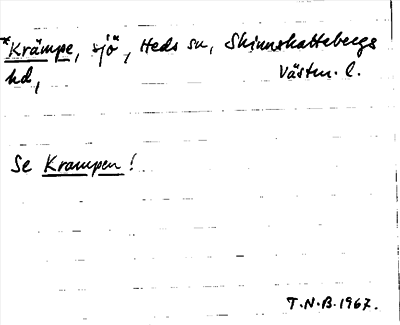 *Krämpe, sjö, Heds sn, Skinnskattebergs
hd, Västm. l.
Se Krampen!
T.N.B. 1967.